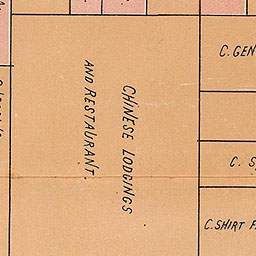 CHINESE LODGINGS
AND RESTAURANT.
C. GEN
C. S
C. SHIRT F